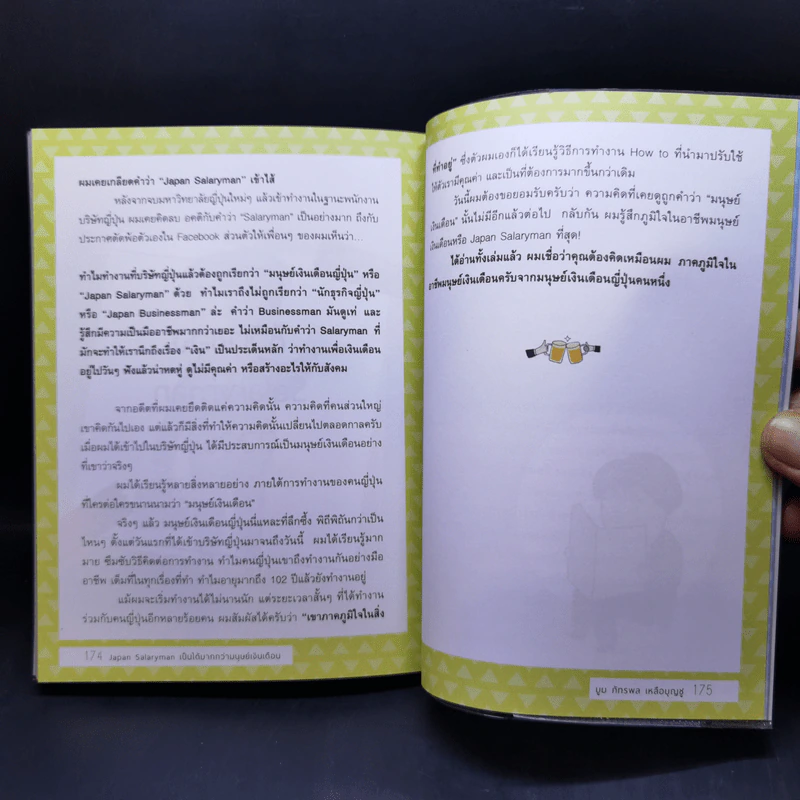 ผมเคยเกลียดคำว่า “Japan Salaryman” เข้าไส้
หลังจากจบมหาวิทยาลัยญี่ปุ่นใหม่ๆ แล้วเข้าทำงานในฐานะพนักงาน
บริษัทญี่ปุ่น ผมเคยคิดลบ อคติกับคำว่า “Salaryman” เป็นอย่างมาก ถึงกับ
ประกาศตัดพ้อตัวเองใน Facebook ส่วนตัวให้เพื่อนๆ ของผมเห็นว่า...
ทำไมทำงานที่บริษัทญี่ปุ่นแล้วต้องถูกเรียกว่า “มนุษย์เงินเดือนญี่ปุ่น” หรือ
“Japan Salaryman” ด้วย ทำไมเราถึงไม่ถูกเรียกว่า “นักธุรกิจญี่ปุ่น”
หรือ “Japan Businessman” ล่ะ คำว่า Businessman มันดูเท่ และ
รู้สึกมีความเป็นมืออาชีพมากกว่าเยอะ ไม่เหมือนกับคำว่า Salaryman ที่
มักจะทำให้เรานึกถึงเรื่อง “เงิน” เป็นประเด็นหลัก ว่าทำงานเพื่อเงินเดือน
อยู่ไปวันๆ ฟังแล้วน่าหดหู่ ดูไม่มีคุณค่า หรือสร้างอะไรให้กับสังคม
จากอดีตที่ผมเคยยึดติดแต่ความคิดนั้น ความคิดที่คนส่วนใหญ่
เขาคิดกันไปเอง แต่แล้วก็มีสิ่งที่ทำให้ความคิดนั้นเปลี่ยนไปตลอดกาลครับ
เมื่อผมได้เข้าไปในบริษัทญี่ปุ่น ได้มีประสบการณ์เป็นมนุษย์เงินเดือนอย่าง
ที่เขาว่าจริงๆ
ผมได้เรียนรู้หลายสิ่งหลายอย่าง ภายใต้การทำงานของคนญี่ปุ่น
ที่ใครต่อใครขนานนามว่า “มนุษย์เงินเดือน”
จริงๆ แล้ว มนุษย์เงินเดือนญี่ปุ่นนี่แหละที่ลึกซึ้ง พิถีพิถันกว่าเป็น
ไหนๆ ตั้งแต่วันแรกที่ได้เข้าบริษัทญี่ปุ่นมาจนถึงวันนี้ ผมได้เรียนรู้มาก
มาย ซึมซับวิธีคิดต่อการทำงาน ทำไมคนญี่ปุ่นเขาถึงทำงานกันอย่างมือ
อาชีพ เต็มที่ในทุกเรื่องที่ทำ ทำไมอายุมากถึง 102 ปีแล้วยังทำงานอยู่
แม้ผมจะเริ่มทำงานได้ไม่นานนัก แต่ระยะเวลาสั้นๆ ที่ได้ทำงาน
ร่วมกับคนญี่ปุ่นอีกหลายร้อยคน ผมสัมผัสได้ครับว่า “เขาภาคภูมิใจในสิ่ง
174 Japan Salaryman เป็นได้มากกว่ามนุษย์เงินเดือน
ที่ทำอยู่” ซึ่งตัวผมเองก็ได้เรียนรู้วิธีการทำงาน How to ที่นำมาปรับใช้
ให้ตัวเรามีคุณค่า และเป็นที่ต้องการมากขึ้นกว่าเดิม
วันนี้ผมต้องขอยอมรับครับว่า ความคิดที่เคยดูถูกคำว่า “มนุษย์
เงินเดือน” นั้นไม่มีอีกแล้วต่อไป กลับกัน ผมรู้สึกภูมิใจในอาชีพมนุษย์
เงินเดือนหรือ Japan Salaryman ที่สุด!
ได้อ่านทั้งเล่มแล้ว ผมเชื่อว่าคุณต้องคิดเหมือนผม ภาคภูมิใจใน
อาชีพมนุษย์เงินเดือนครับจากมนุษย์เงินเดือนญี่ปุ่นคนหนึ่ง
บูม ภัทรพล เหลือบุญชู 175